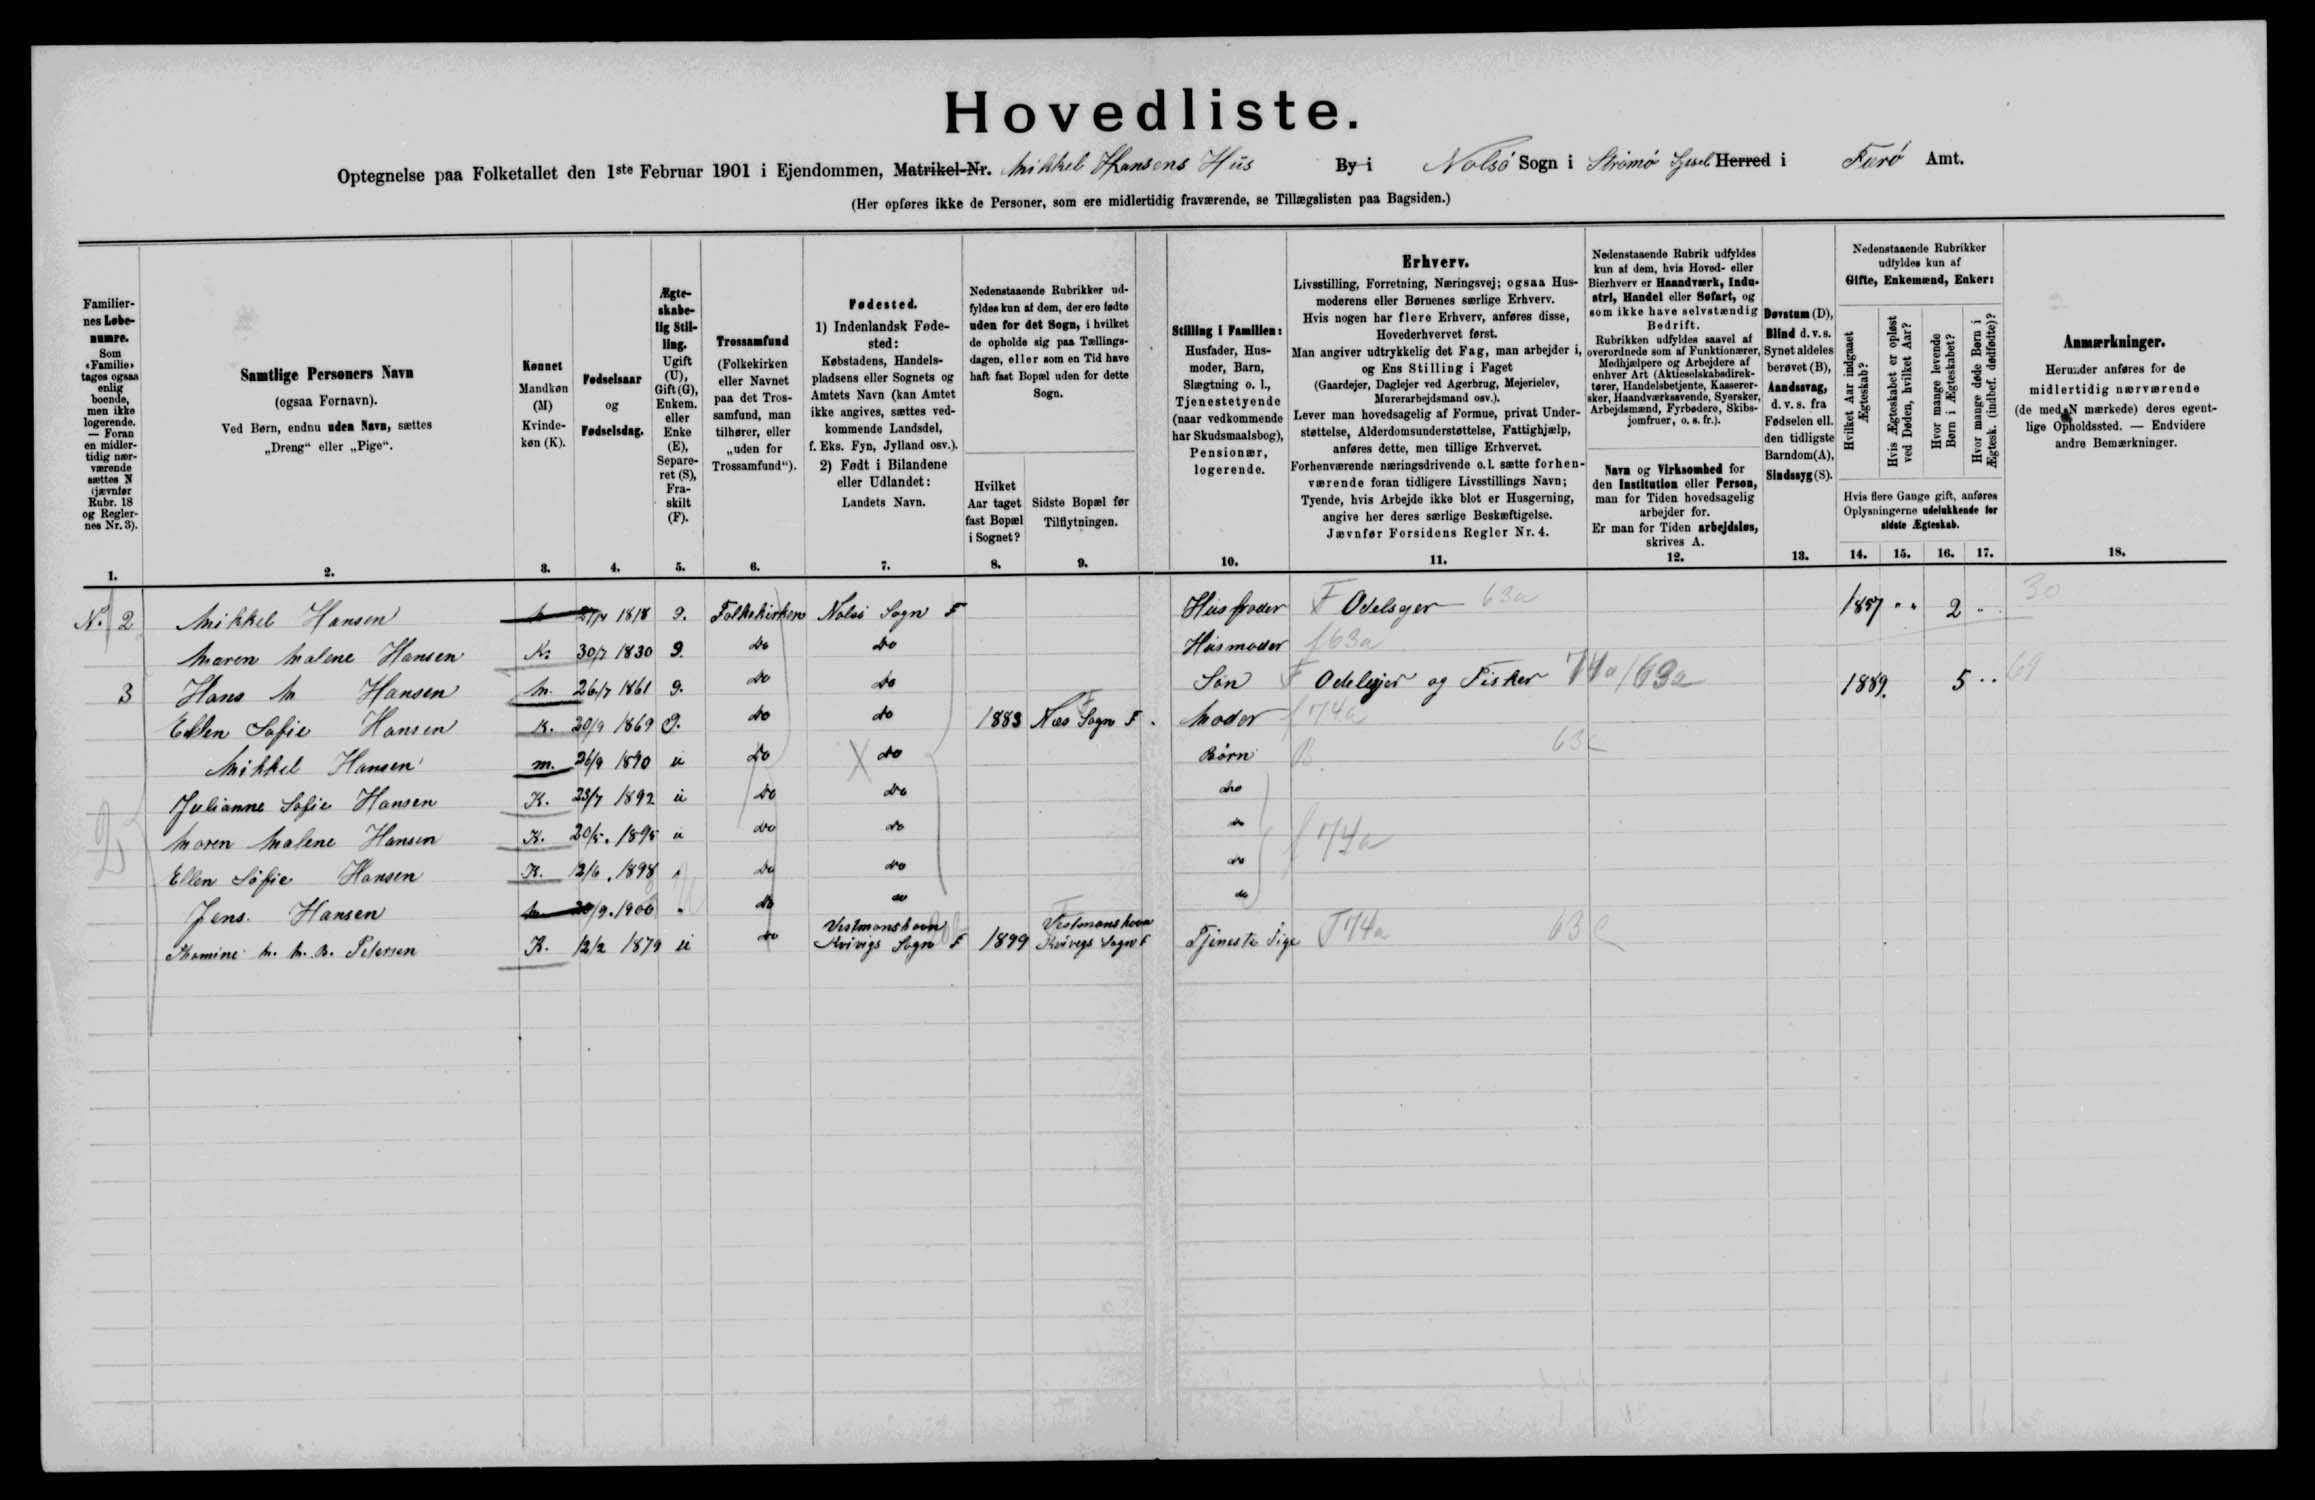 Hovedliste.
Optegnelse paa Folketallet den 1ste Februar 1901 i Ejendommen, Matrikel-Nr. Mikkel Hansens Hus By i Nolsö Sogn i Strömö Herred i Færö Amt.
(Her opføres ikke de Personer, som ere midlertidig fraværende, se Tillægslisten paa Bagsiden.)
Familiernes Løbenumre. Som «Familie» tages ogsaa enlig boende, men ikke logerende. — Foran en midlertidig nærværende sættes N (jævnfør Rubr. 18 og Reglernes Nr. 3).
Samtlige Personers Navn
(ogsaa Fornavn).
Ved Børn, endnu uden Navn, sættes
„Dreng“ eller „Pige“.
Kønnet
Mandkøn (M)
Kvindekøn (K).
Fødselsaar
og
Fødselsdag.
Ægteskabelig Stilling.
Ugift (U), Gift (G), Enkem. eller Enke (E), Separeret (S), Fraskilt (F).
Trossamfund
(Folkekirken eller Navnet paa det Trossamfund, man tilhører, eller „uden for Trossamfund“).
Fødested.
1) Indenlandsk Fødested:
Købstadens, Handelspladsens eller Sognets og Amtets Navn (kan Amtet ikke angives, sættes vedkommende Landsdel, f. Eks. Fyn, Jylland osv.).
2) Født i Bilandene eller Udlandet:
Landets Navn.
Nedenstaaende Rubrikker udfyldes kun af dem, der ere fødte uden for det Sogn, i hvilket de opholde sig paa Tællingsdagen, eller som en Tid have haft fast Bopæl uden for dette Sogn.
Hvilket Aar taget fast Bopæl i Sognet?
Sidste Bopæl før Tilflytningen.
Stilling i Familien:
Husfader, Husmoder, Barn, Slægtning o. l., Tjenestetyende (naar vedkommende har Skudsmaalsbog), Pensionær, logerende.
Erhverv.
Livsstilling, Forretning, Næringsvej; ogsaa Husmoderens eller Børnenes særlige Erhverv.
Hvis nogen har flere Erhverv, anføres disse, Hovederhvervet først.
Man angiver udtrykkelig det Fag, man arbejder i, og Ens Stilling i Faget
(Gaardejer, Daglejer ved Agerbrug, Mejerielev, Murerarbejdsmand osv.).
Lever man hovedsagelig af Formue, privat Understøttelse, Alderdomsunderstøttelse, Fattighjælp, anføres dette, men tillige Erhvervet.
Forhenværende næringsdrivende o. l. sætte forhenværende foran tidligere Livsstillings Navn;
Tyende, hvis Arbejde ikke blot er Husgerning, angive her deres særlige Beskæftigelse.
Jævnfør Forsidens Regler Nr. 4.
Nedenstaaende Rubrik udfyldes kun af dem, hvis Hoved- eller Bierhverv er Haandværk, Industri, Handel eller Søfart, og som ikke have selvstændig Bedrift.
Rubrikken udfyldes saavel af overordnede som af Funktionærer, Medhjælpere og Arbejdere af enhver Art (Aktieselskabsdirektører, Handelsbetjente, Kasserersker, Haandværkssvende, Syersker, Arbejdsmænd, Fyrbødere, Skibsjomfruer, o. s. fr.).
Navn og Virksomhed for den Institution eller Person, man for Tiden hovedsagelig arbejder for.
Er man for Tiden arbejdsløs, skrives A.
Døvstum (D), Blind d. v. s. Synet aldeles berøvet (B), Aandssvag, d. v. s. fra Fødselen ell. den tidligste Barndom (A), Sindssyg (S).
Nedenstaaende Rubrikker udfyldes kun af
Gifte, Enkemænd, Enker:
Hvilket Aar indgaaet Ægteskab?
Hvis Ægteskabet er opløst ved Døden, hvilket Aar?
Hvor mange levende Børn i Ægteskabet?
Hvor mange døde Børn i Ægtesk. (indbef. dødfødte)?
Hvis flere Gange gift, anføres Oplysningerne udelukkende for sidste Ægteskab.
Anmærkninger.
Herunder anføres for de midlertidig nærværende (de med N mærkede) deres egentlige Opholdssted. — Endvidere andre Bemærkninger.
1. 2. 3. 4. 5. 6. 7. 8. 9. 10. 11. 12. 13. 14. 15. 16. 17. 18.
No. 2 Mikkel Hansen 1818 g. Folkekirken Nolsö Sogn F Husfader F Odelsejer 63a 1857 " " 2 " 30
Maren Malene Hansen K. 30/7 1830 g. do do Husmoder f 63a
3 Hans M Hansen M. 26/7 1861 g. do do Sön F Odelsejer og Fisker 74a/63a 1889. 5 " 69
Ellen Sofie Hansen K. 20/9 1869 g. do do 1883 Næs Sogn F. Moder f 74a
Mikkel Hansen m. 26/9 1890 u do X do Börn B 63c
Julianne Sofie Hansen K. 23/7 1892 u do do do
Maren Malene Hansen K. 20/5. 1895 u do do do f 74a
Ellen Sofie Hansen K. 12/6. 1898 " do do do
Jens Hansen 1900 " do do do
2
Thomine M. M. B. Petersen K. 12/2 1879 u do Vestmanshavn Kvivigs Sogn F 1899 Vestmanshavn Kvivigs Sogn F Tjeneste Pige T 74a 63c